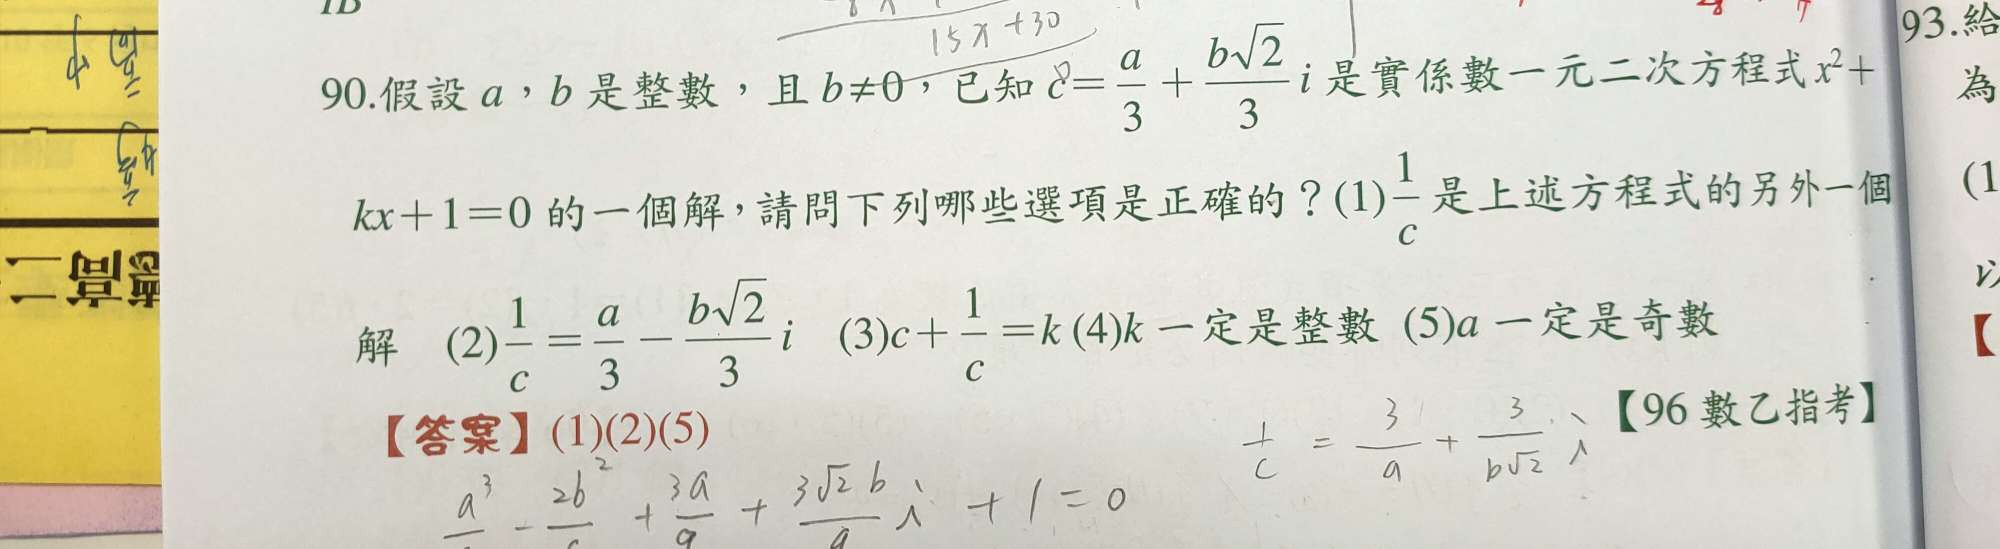 15x+30
90.假設 a，b 是整數，且 b≠0，已知 c=a/3+b√2/3 i 是實係數一元二次方程式 x²+
kx+1=0 的一個解，請問下列哪些選項是正確的？(1)1/c 是上述方程式的另外一個
解 (2)1/c=a/3−b√2/3 i (3)c+1/c=k (4)k 一定是整數 (5)a 一定是奇數
【答案】(1)(2)(5)
【96 數乙指考】
1/c = 3/a + 3/b√2 i
+ 3a/9 + 3√2 b/9 i + 1 = 0
93.給
為
(1
以
【
二高